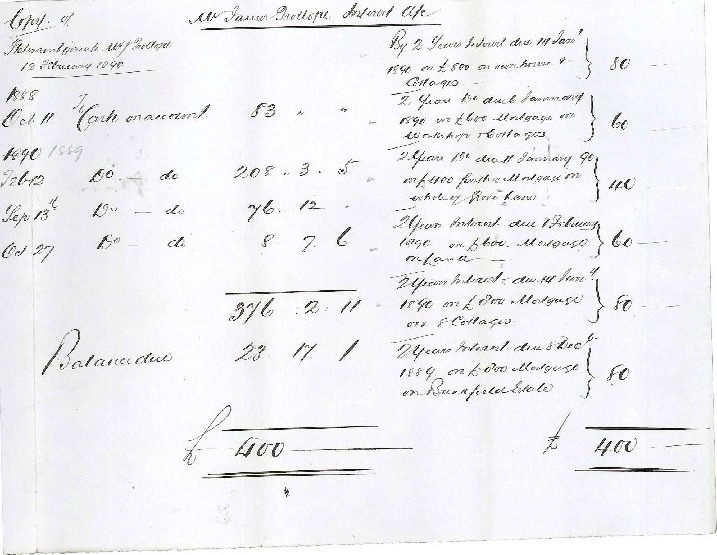 Copy of
Mr James Trollope Interest A/c
Statement Mr J Trollope
13 February 1890
1888
Oct 11 To Cash on account 83 " "
1890 1889
Feb 12 Do do 208 . 3 . 5
Sep 13th Do - do 76 . 12 .
Oct 27 Do - do 8 7 6
376 . 2 . 11
Balance due 23 . 17 . 1
£ 400
By 2 Years Interest due 1st Jany
1890 on £800 on &
Cottages 80
2 Years Do due 6 January
1890 on £600 Mortgage on
Workshop & Cottages 60
2 Years Do due 11 January 90
on £400 further Mortgage on
whole of 40
2 Years Interest due 1 February
1890 on £600. Mortgage
on Land 60
2 Years Interest due 1st
1890 on £800 Mortgage
on 8 Cottages 80
2 Years Interest due 8 Dec
1889 on £800 Mortgage
on Estate 80
£ 400